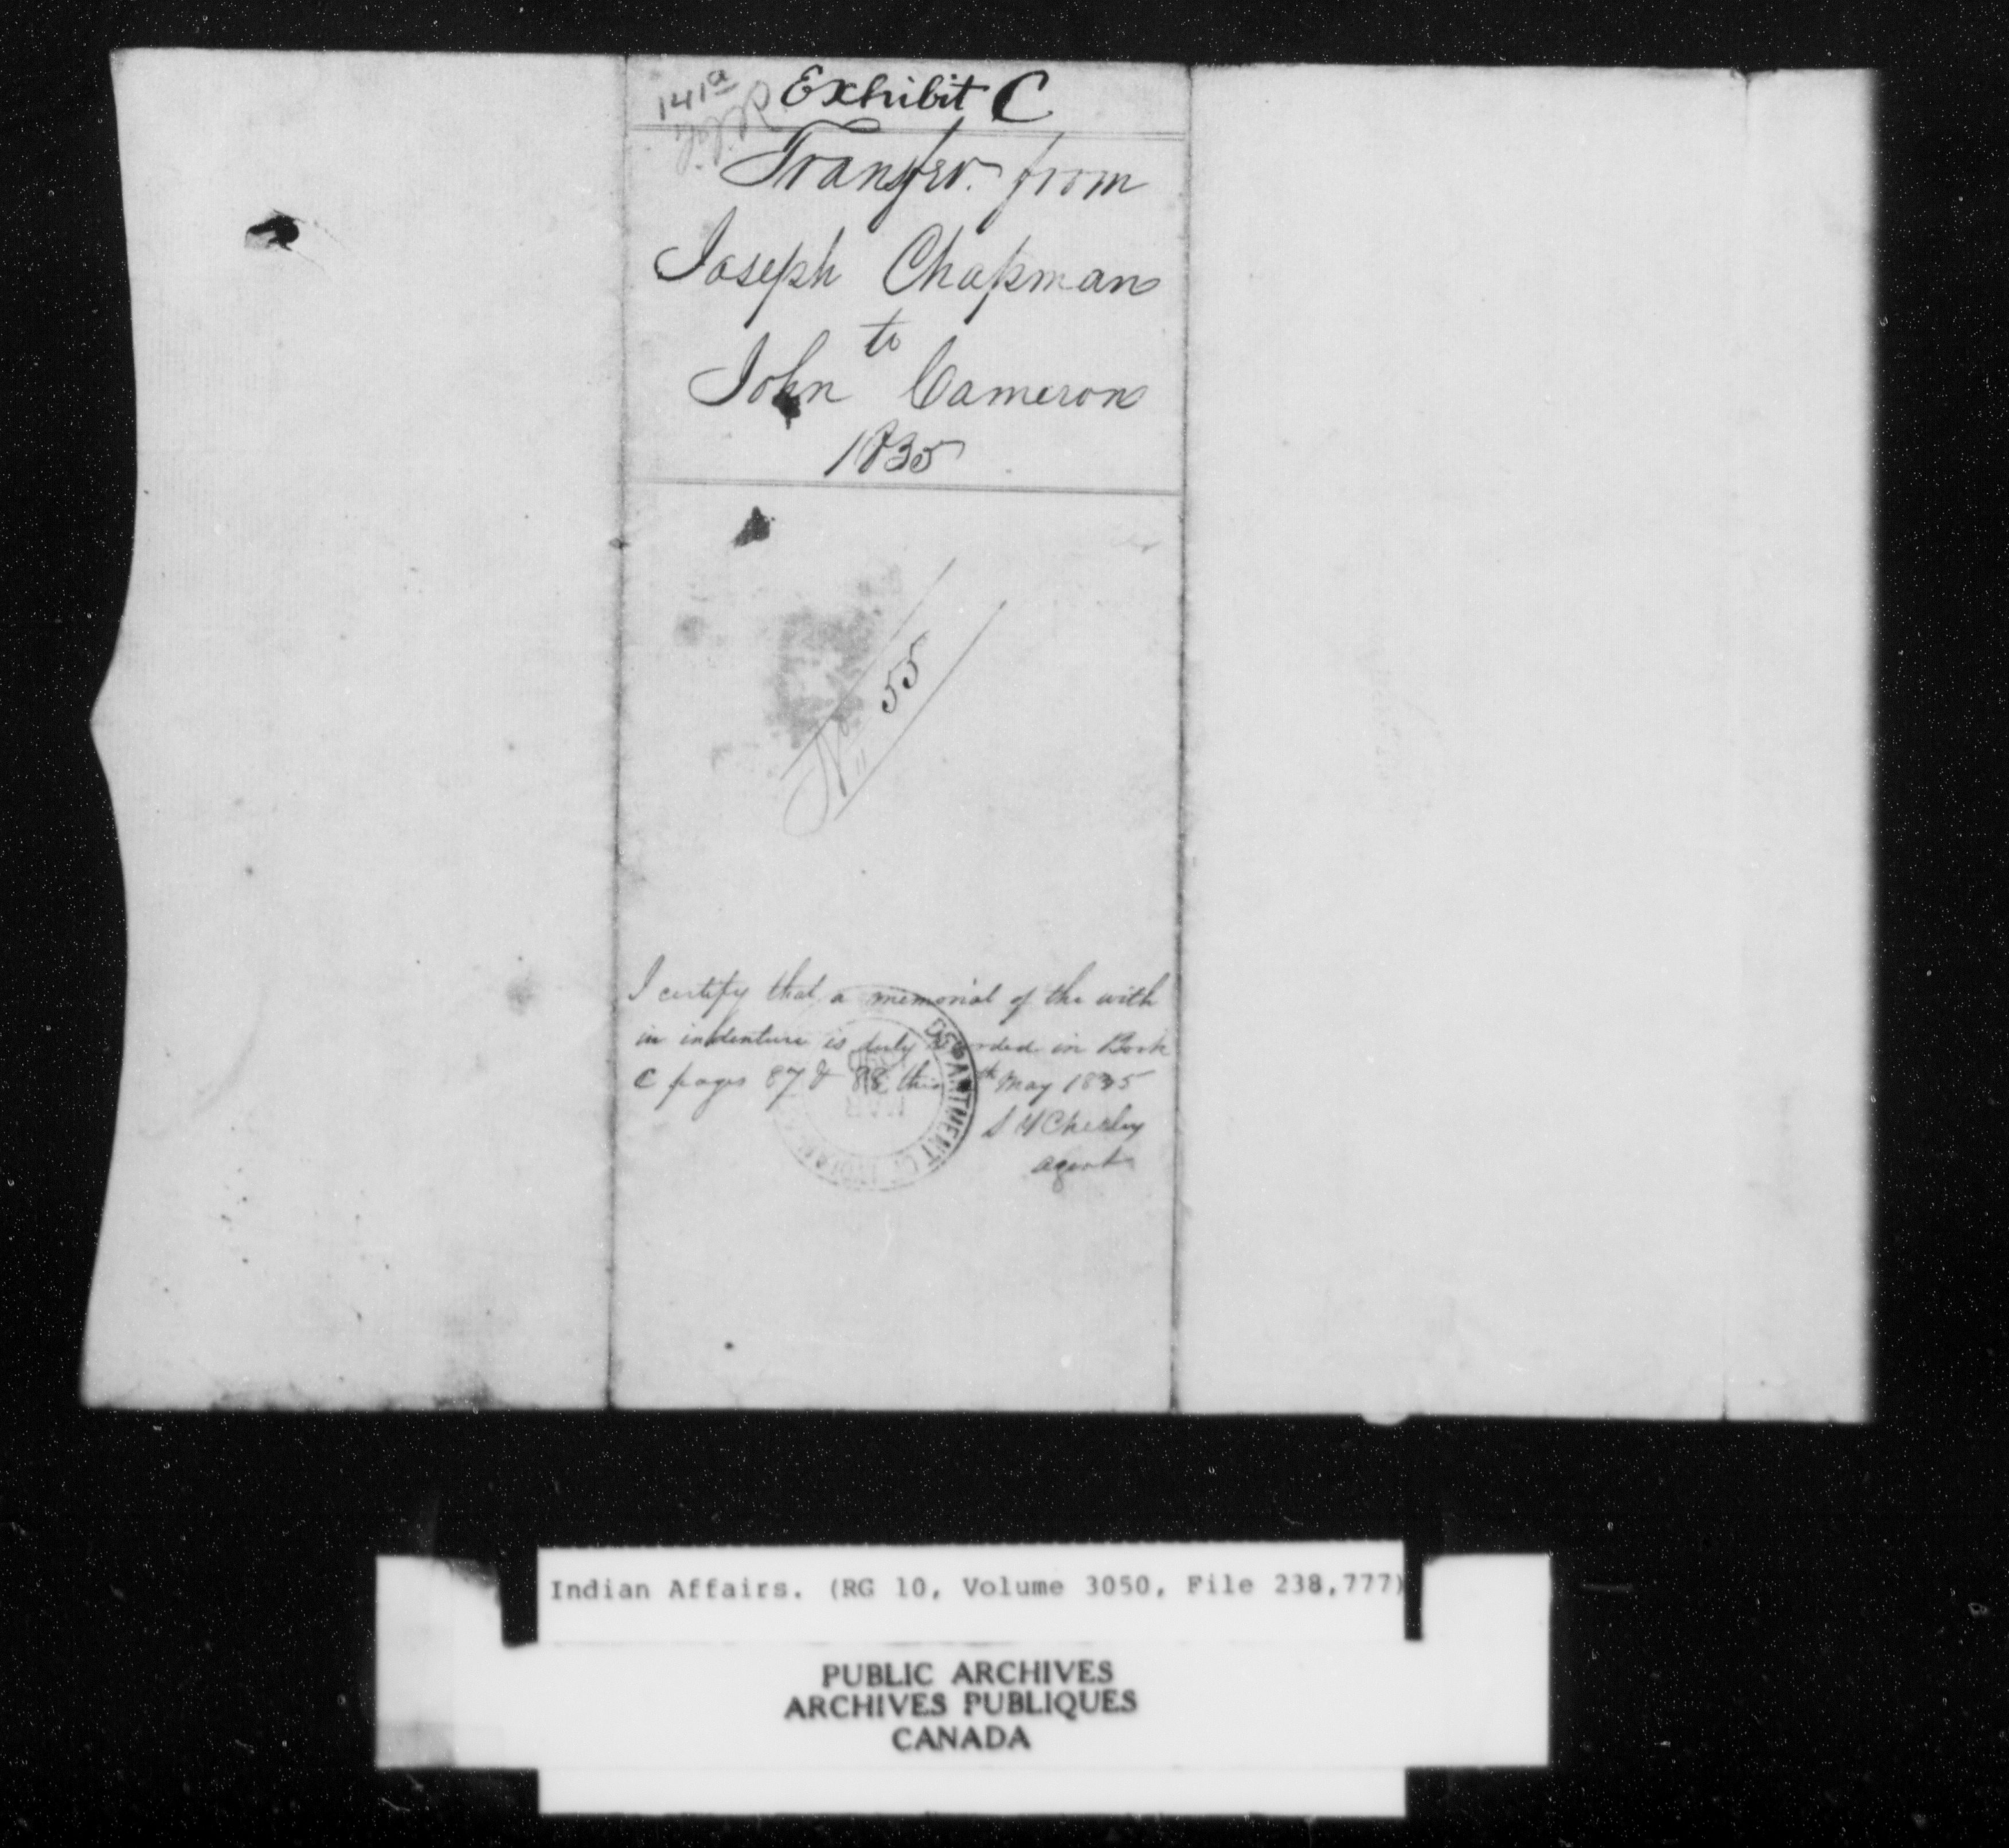 141a
Exhibit C
Transfer. from
Joseph Chapman
to
John Cameron
1835
No 55
I certify that a memorial of the with
in indenture is duly recorded in Book
C pages 87 & 88 this th May 1835
S Y Chesley
agent
DEPARTMENT OF INDIAN
MAR
Indian Affairs. (RG 10, Volume 3050, File 238,777)
PUBLIC ARCHIVES
ARCHIVES PUBLIQUES
CANADA